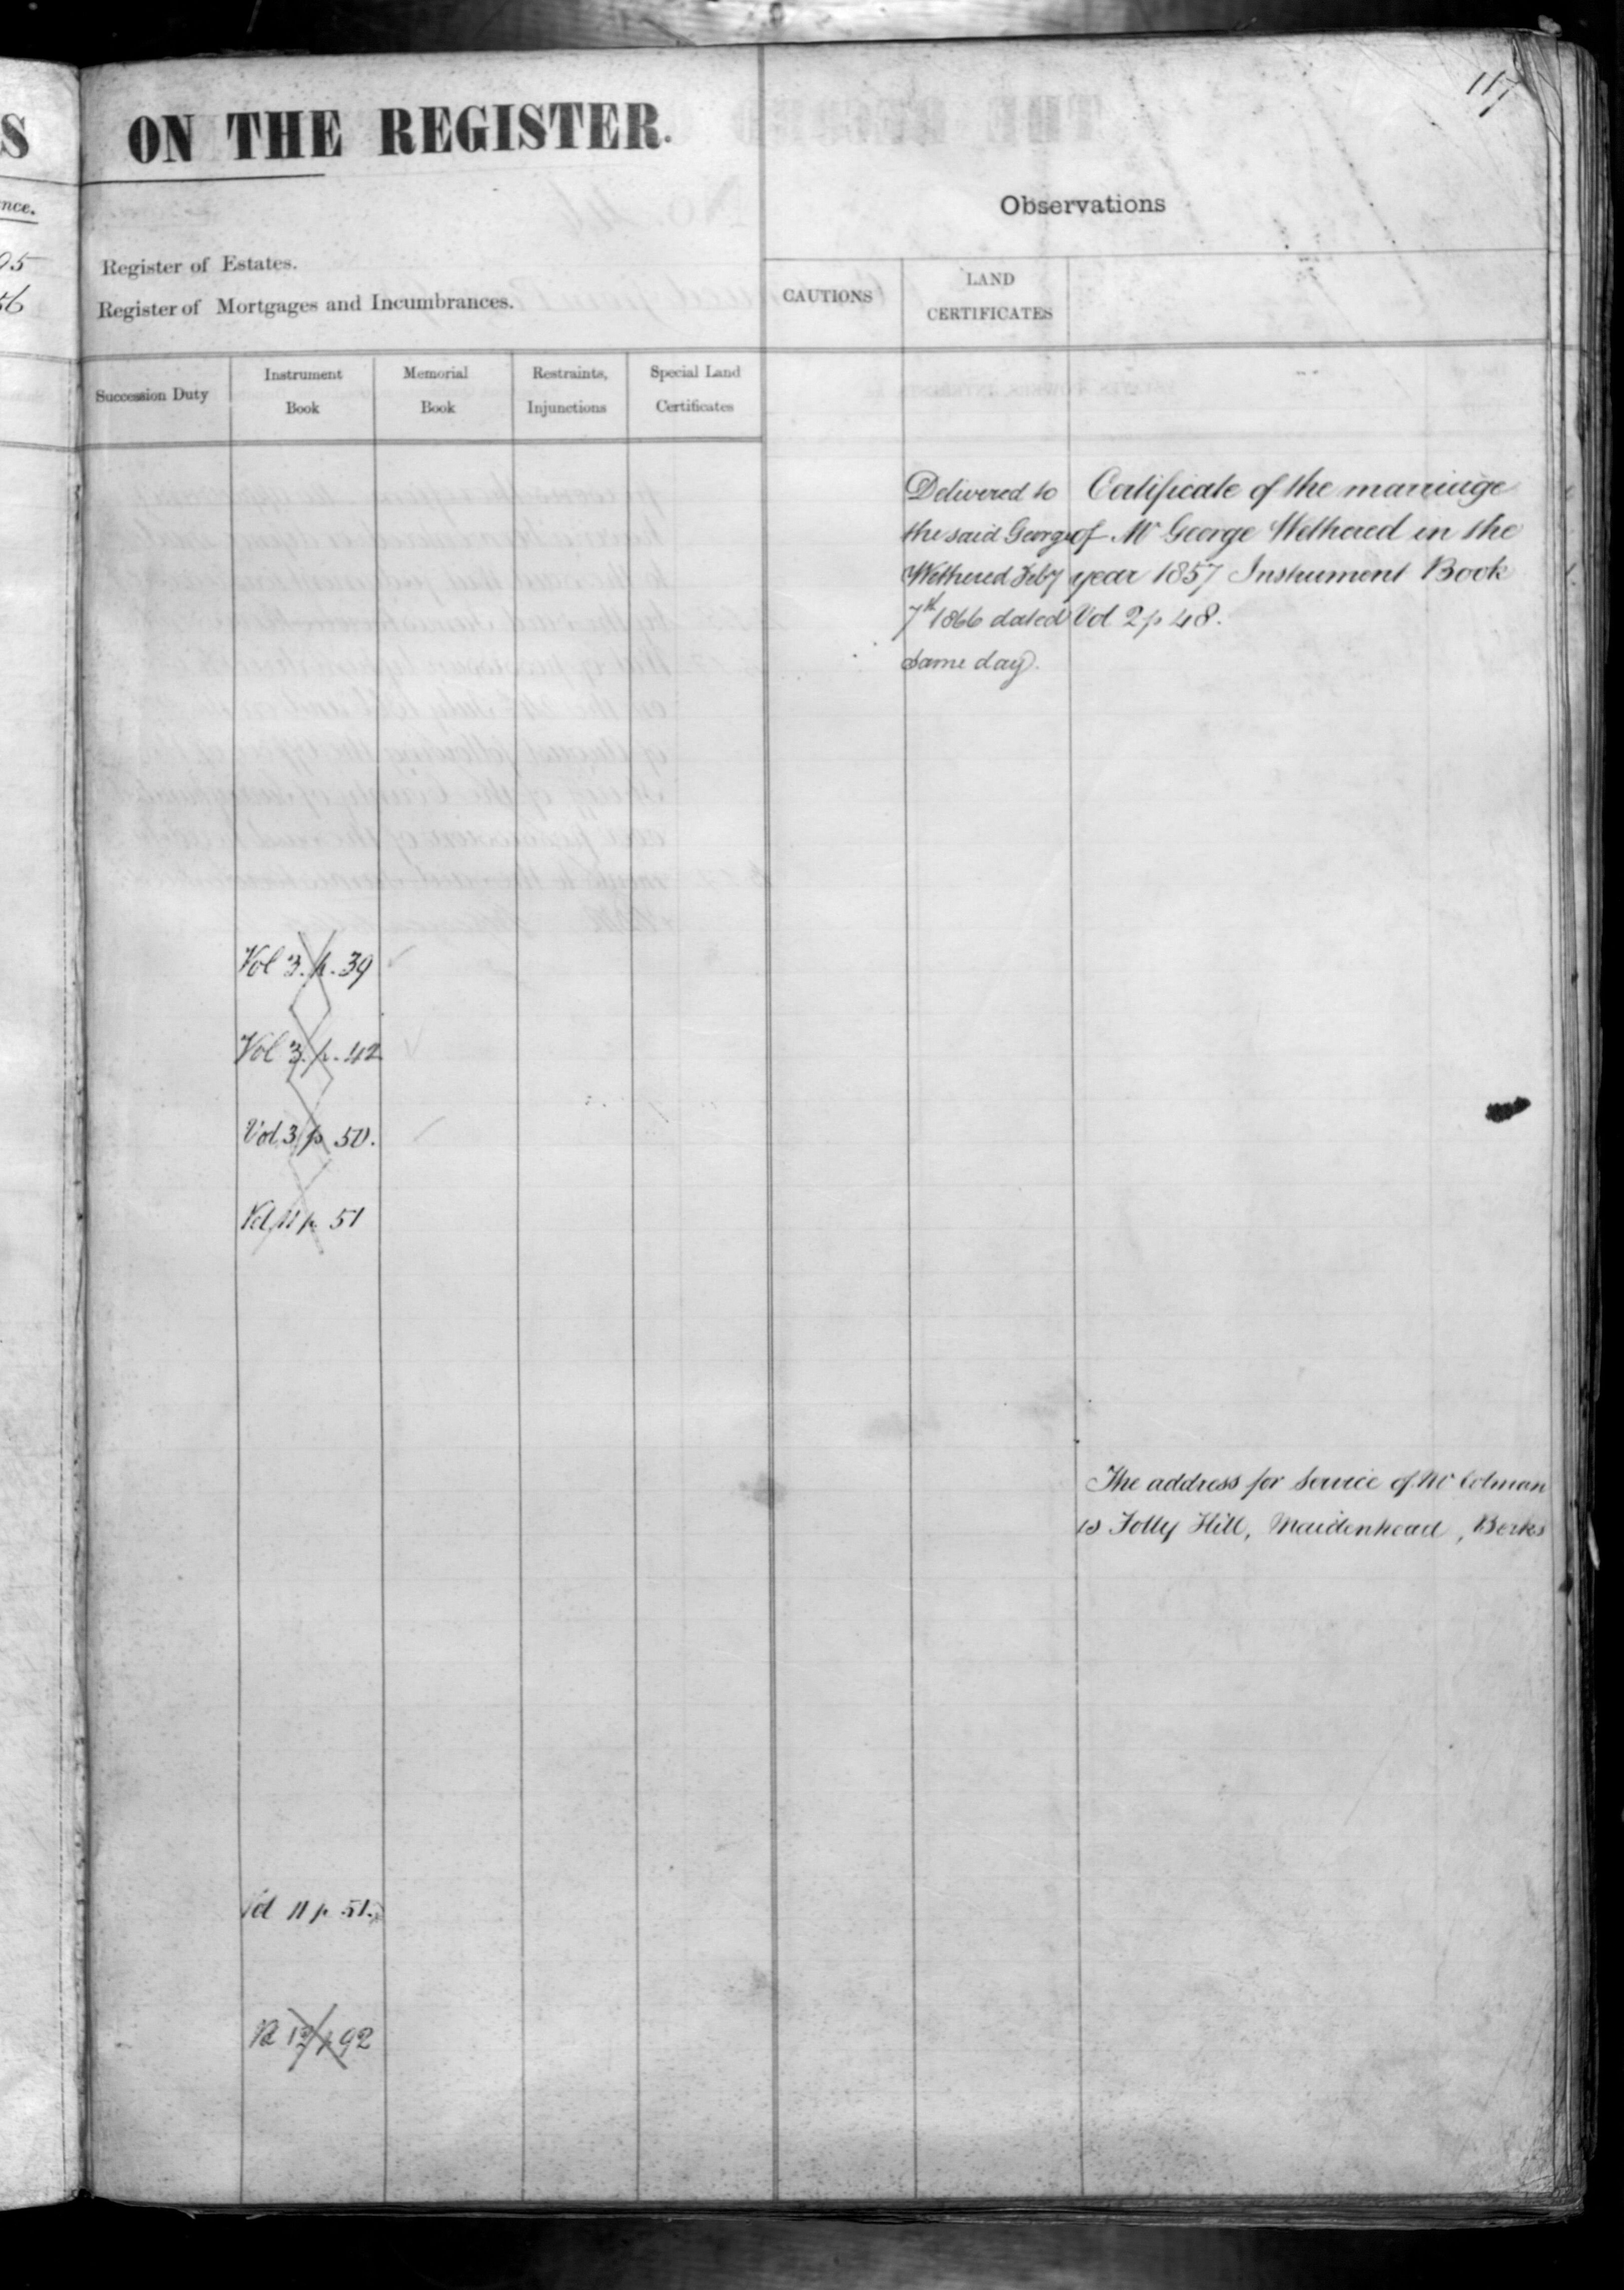 117
S
ON THE REGISTER.
nce.
Observations
95
56
Register of Estates.
Register of Mortgages and Incumbrances.
CAUTIONS
LAND
CERTIFICATES
Succession Duty
Instrument
Book
Memorial
Book
Restraints,
Injunctions
Special Land
Certificates
Delivered to
the said George
Wethered Feby
7th 1866 dated
same day.
Certificate of the marriage
of Mr George Wethered in the
year 1857 Instrument Book
Vol 2 p 48.
Vol 3. p. 39
Vol 3. p. 42
Vol 3 p 50.
Vol 11 p. 51
The address for service of Mr Colman
is Folly Hill, Maidenhead, Berks
Vol 11 p. 51.
Vol 12 p 92